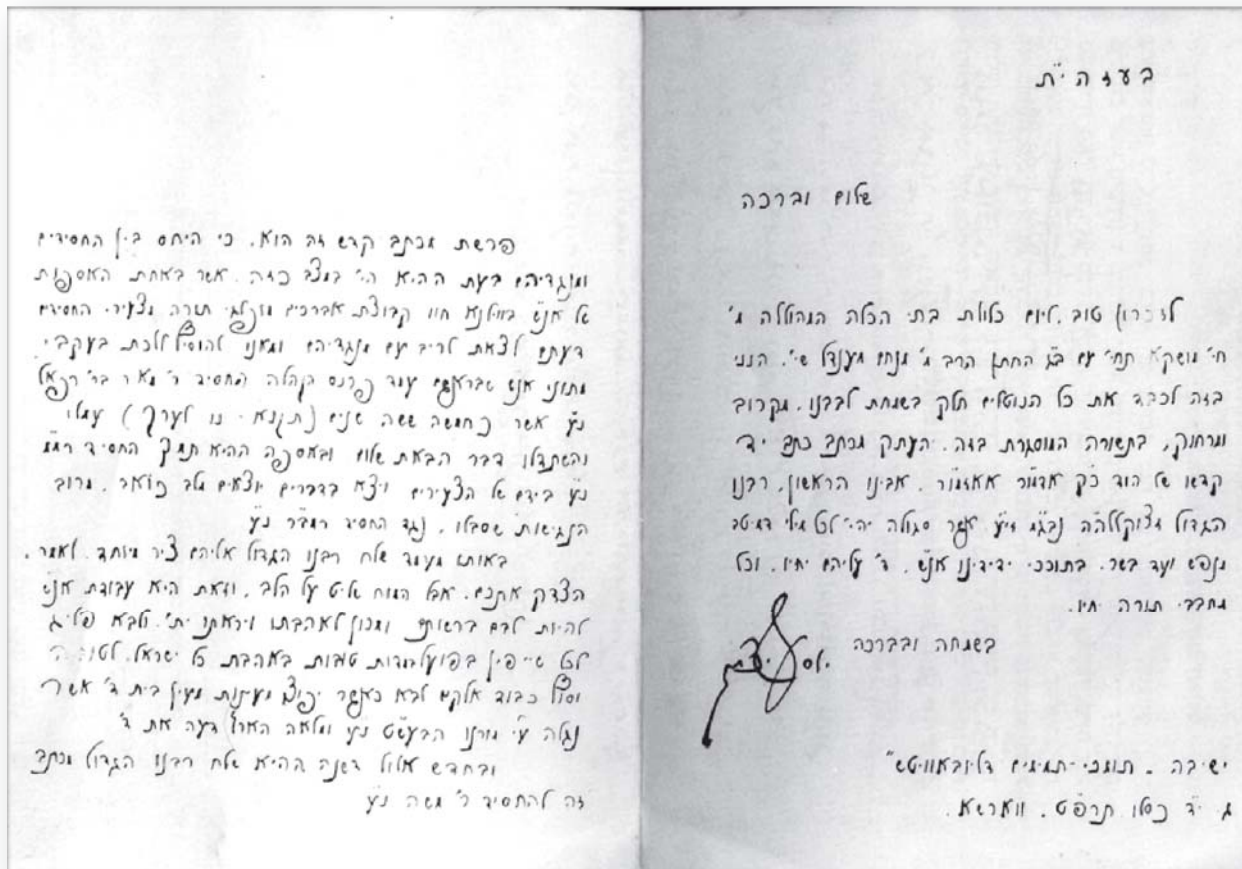 בעזה״ת
שלום וברכה
לזכרון טוב. ליום כלולת בתי הכלה המהוללה מ׳
חי׳ מושקא תחי׳ עם ב״ג החתן הרב מ׳ מנחם מענדל שי׳. הנני
בזה לכבד את כל הנוטלים חלק בשמחת לבבנו, מקרוב
ומרחוק, בתשורה המוסגרת בזה. העתק מכתב כתב יד
קדשו של הוד כ״ק אדמו״ר אאזמו״ר. אבינו הראשון, רבנו
הגדול מצוקללה״ה נבג״מ זי״ע. אשר סגולה יהי׳ לכל מילי דמיטב
מנפש ועד בשר. בתוככי ידידינו אנ״ש, ד׳ עליהם יחיו, וכל
מחבבי תורה יחיו.
בשמחה ובברכה
ישיבה. תומכי-תמימים דליובאוויטש״
ג׳ י״ד כסלו תרפ״ט. ווארשא.
פרשת מכתב קדש זה הוא. כי היחס בין החסידים
ומנגדיהם בעת ההיא הי׳ במצב כזה. אשר באחת האספות
של אנ״ש בווילנא חוו קבוצת אברכים מופלגי תורה מצעירי החסידים
דעתם לצאת לריב עם מנגדיהם ומאנו להוסיף ללכת בעקבי
מתוני אנ״ש שבראשם עמד פרנס הקהלה החסיד ר׳ מאיר בר׳ רפאל
נ״ע אשר כחמשה ששה שנים (תקנ״א - נ״ו לערך) עמלו
והשתדלו דבר הבאת שלום ובאספה ההיא תמך החסיד
נ״ע בידם של הצעירים ויצא בדברים יוצאים מלב כואב. מרוב
הנגישות שסבלו. נגד החסיד רמב״ר נ״ע
באותו מעמד שלח רבנו הגדול אליהם ציר מיוחד. לאמר.
הצדק אתכם. אבל המוח שליט על הלב. וזאת היא עבודת אנ״ש
להיות לבם ברשותם ומכון לאהבתו ויראתו ית׳. ולבא
לכל בפועל במדות טובות באהבת כל ישראל.
וסו״ל כבוד אלקים לבא כאשר יפוצו מעינות מעין בית ד׳ אשר
נגלה ע״י מורנו הבעש״ט נ״ע ומלאה הארץ דעה את ד׳
ובחדש אלול דשנה ההיא שלח רבנו הגדול מכתב
זה להחסיד ר׳ משה נ״ע